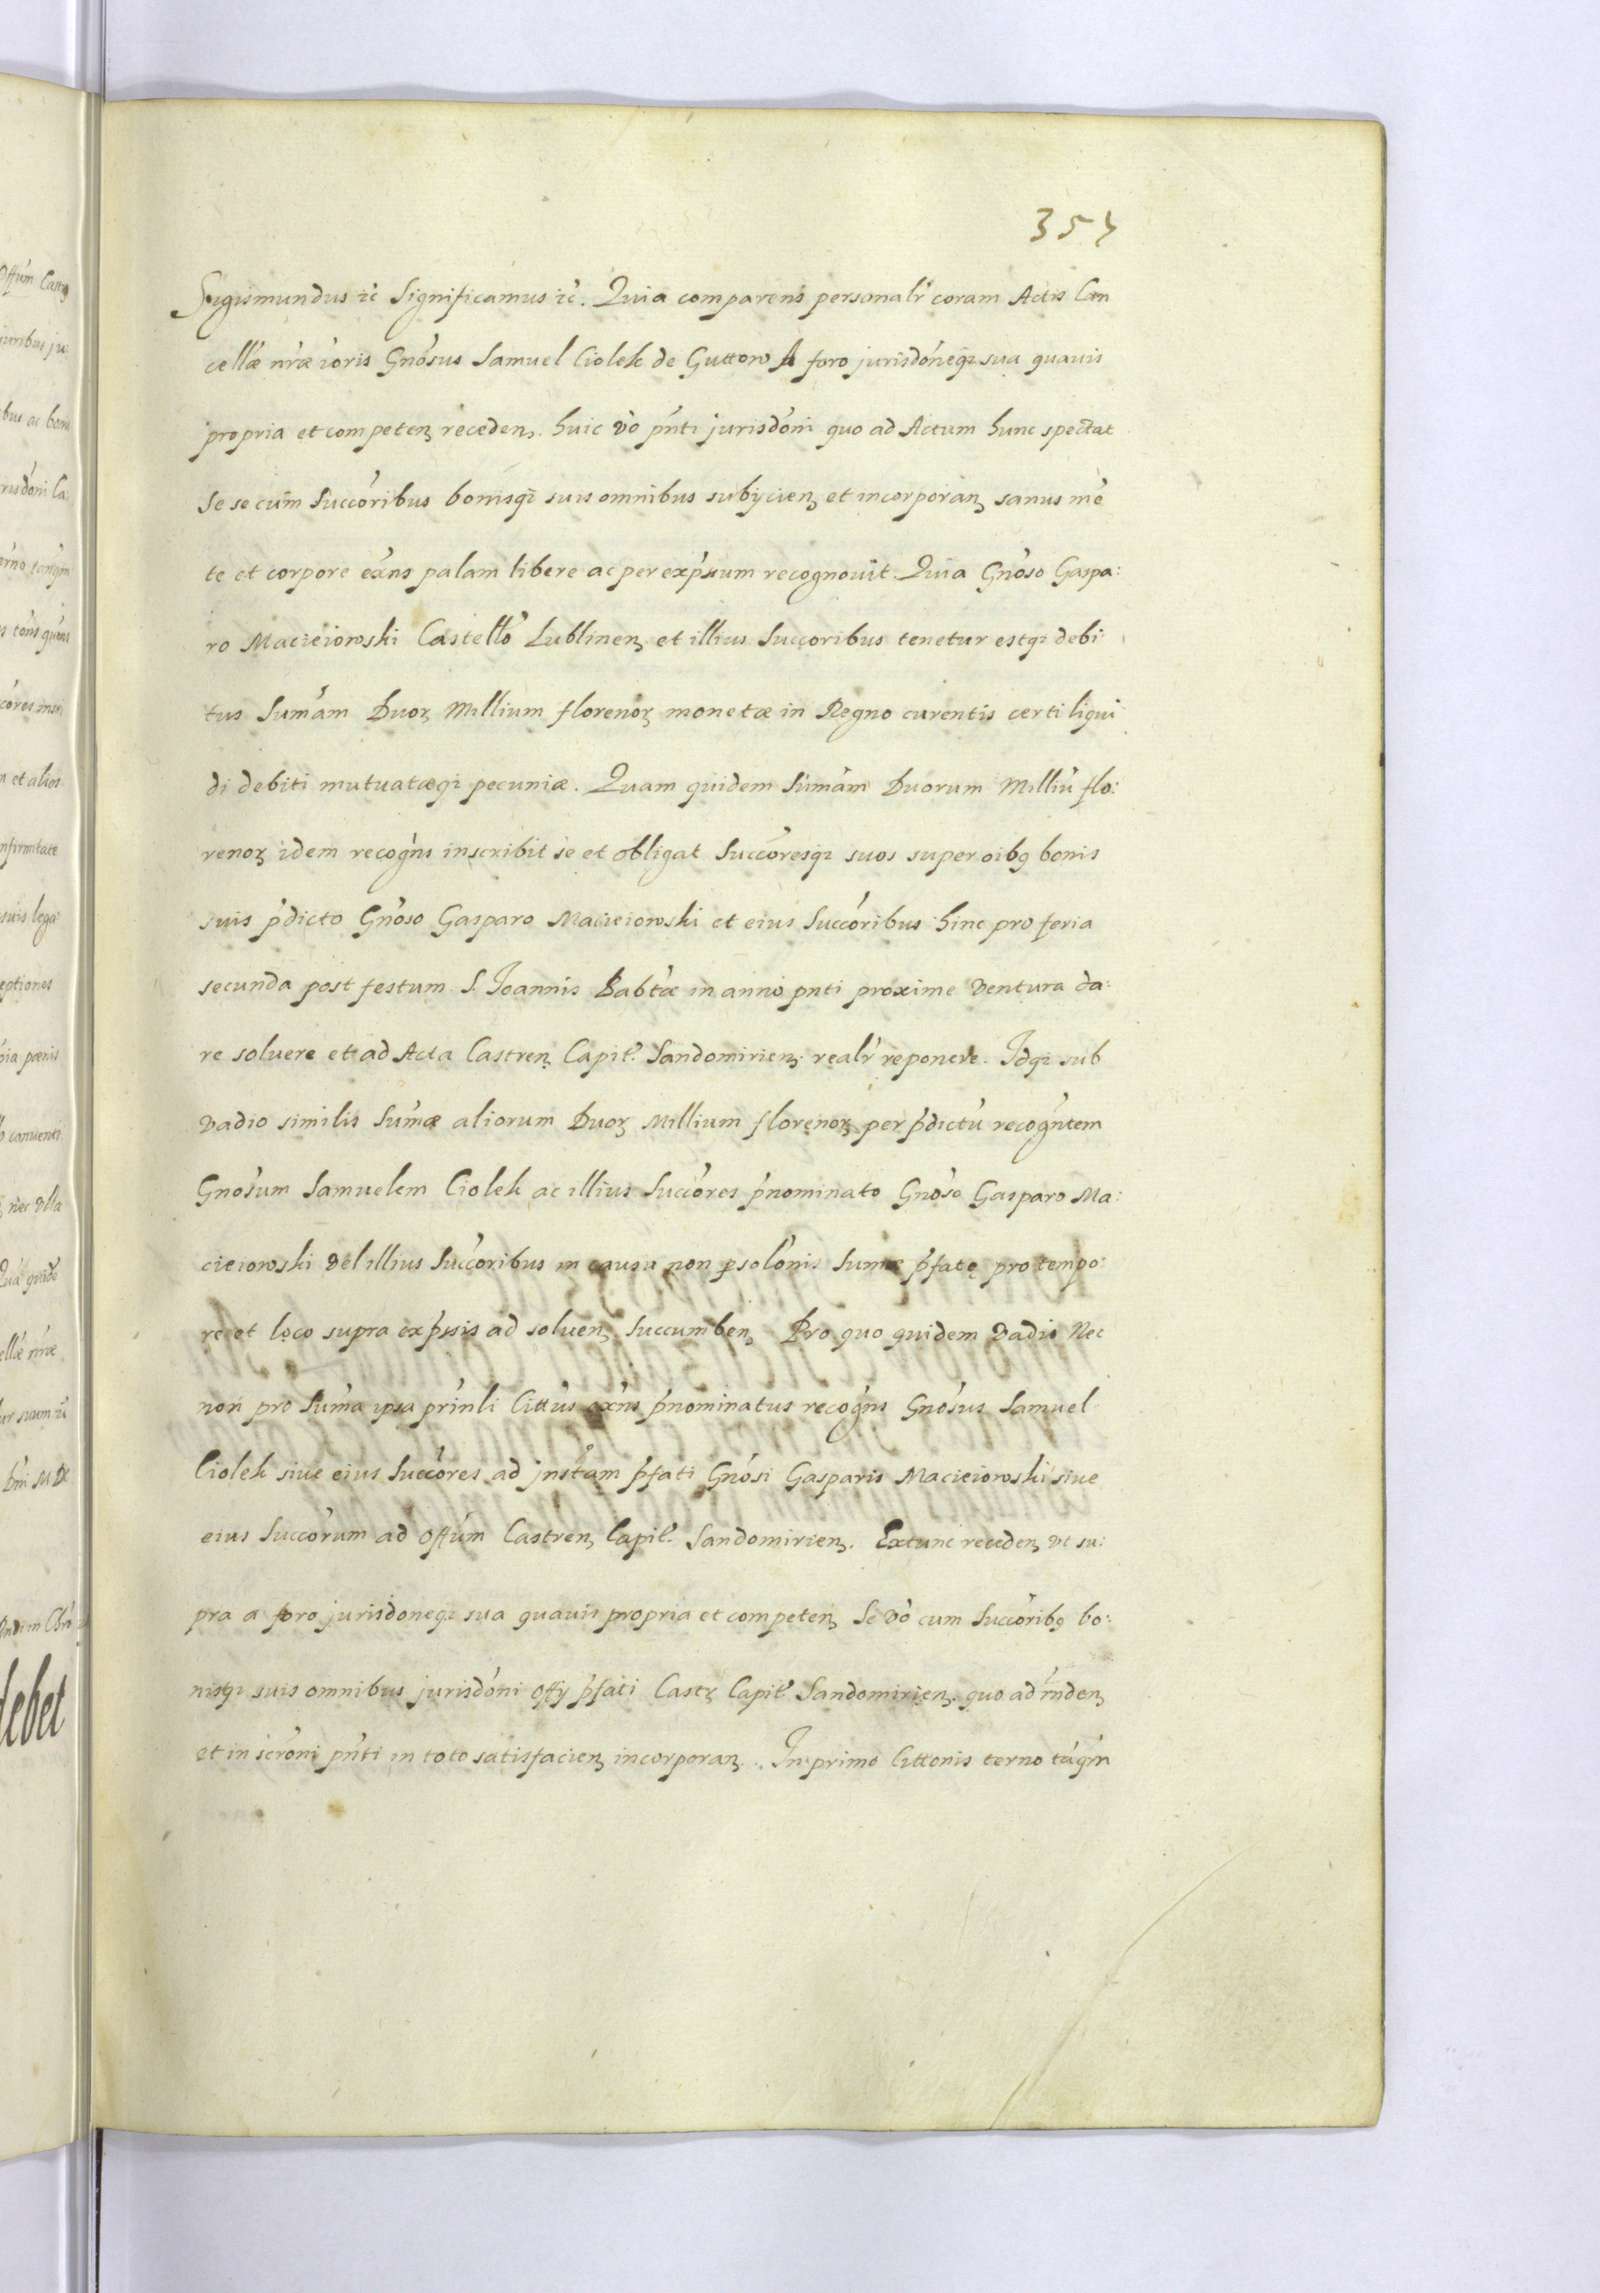 357
Sigismundus ic̃ Significamus ic̃. Quia comparens personalr̃ coram Actis Can
cellæ nr̃æ ioris Gnosus Samuel Ciolek de Guttow A foro jurisdoneqȝ sua quavis
propria et competenȝ recedenȝ. huic vo pn̄ti jurisdoni quo ad Actum hunc spectat
Se se cum Succoribus bonisqȝ suis omnibus subijcienȝ et incorporanȝ sanus mē
te et corpore exns palam libere ac per expsum recognovit. Quia Gnoso Gaspa:
ro Macieiowski Castello Lublinenȝ et illius Succoribus tenetur estqȝ debi
tus Sumam Duoȝ Millium florenoȝ monetæ in Regno curentis certi liqui
di debiti mutuatæqȝ pecuniæ. Quam quidem Sumam Duorum Milliu flo:
renoȝ idem recogns inscribit se et obligat Succoresqȝ suos super oibȝ bonis
suis pdicto Gnoso Gasparo Macieiowski et eius Succoribus hinc pro feria
secunda post festum S. Joannis Babtæ in anno pnti proxime ventura da:
re soluere et ad Acta Castrenȝ Capit. Sandomirienȝ realr̃ reponere. Idqȝ sub
vadio similis Sumæ aliorum Duoȝ Millium florenoȝ per pdictu recogntem
Gnosum Samuelem Ciolek ac illius Succores pnominato Gnoso Gasparo Ma:
cieiowski vel illius Succoribus in causa non psolonis Sumæ pfatę pro tempo:
re et loco supra expssis ad soluenȝ Succumbenȝ Pro quo quidem vadio Nec
non pro Suma ipsa prinli Cittus exns pnominatus recogns Gnosus Samuel
Ciolek siue eius Succores ad jnstam pfati Gnosi Gasparis Macieiowski siue
eius Succorum ad Offum Castrenȝ Capit. Sandomirienȝ. Extunc recedenȝ vt su:
pra a foro jurisdoneqȝ sua quavis propria et competenȝ Se vo cum Succoribȝ bo:
nisqȝ suis omnibus jurisdoni Offij pfati Castȝ Capit Sandomirienȝ. quo ad rndenȝ
et in scroni pnti in toto satisfacienȝ incorporanȝ. In primo Cittonis terno tāqm